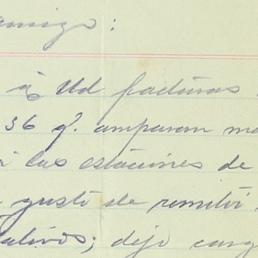 amigo:
á Ud facturas
36 y. amparan
las estaciones de
gusto de remitir
ativos; dejo